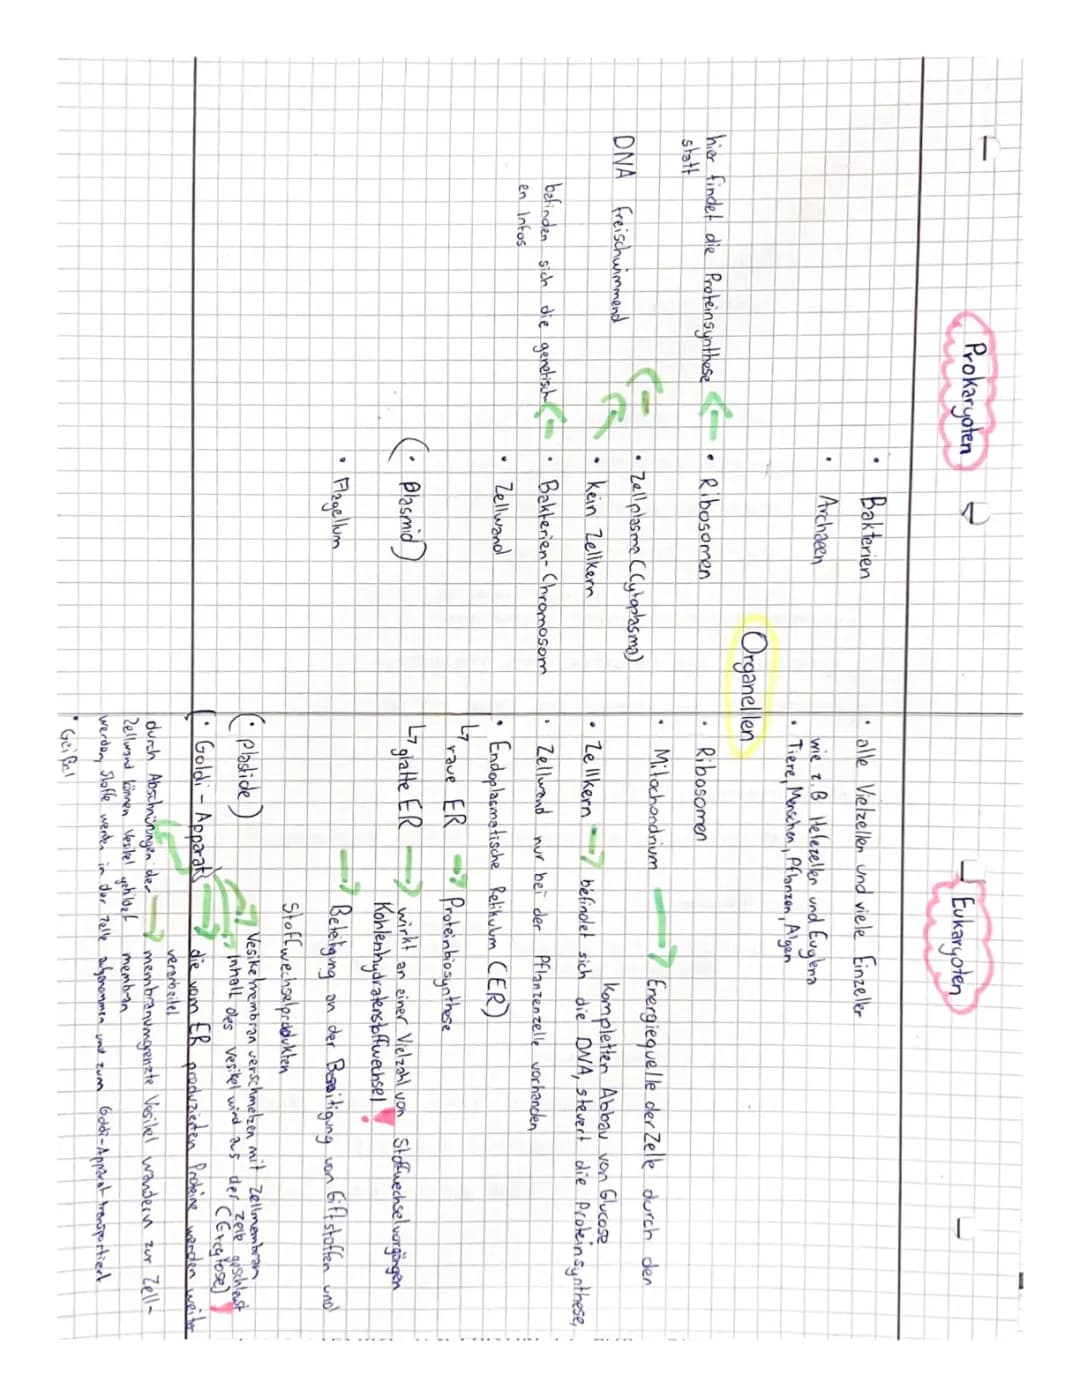 Prokaryoten
• Bakterien
• Archaeen
Eukaryoten
• alle Vielzellen und viele Einzeller
wie z.B Hefezellen und Euglena
• Tiere, Menschen, Pflanzen, Algen
Organellen
• Ribosomen
hier findet die Proteinsynthese
statt
• Zellplasma (Cytoplasma)
• kein Zellkern
DNA freischwimmend
• Bakterien-Chromosom
befinden sich die genetisch
en Infos
• Zellwand
(• Plasmid)
• Flagellum
• Ribosomen
• Mitochondrium → Energiequelle der Zelle durch den
kompletten Abbau von Glucose
• Zellkern → befindet sich die DNA, steuert die Proteinsynthese,
• Zellwand nur bei der Pflanzenzelle vorhanden
• Endoplasmatische Retikulum (ER)
↳ raue ER → Proteinbiosynthese
↳ glatte ER → wirkt an einer Vielzahl von Stoffwechselvorgängen
Kohlenhydratenstoffwechsel
→ Beteiligung an der Beseitigung von Giftstoffen und
Stoffwechselprodukten
(• Plastide)
→ Vesikelmembran verschmelzen mit Zellmembran
→ Inhalt des Vesikel wird aus der Zelle
(• Goldi-Apparat → die vom ER produzierten Proteine werden weiter
verarbeitet
durch Abschnürungen der → membranumgrenzte Vesikel wandern zur Zell-
Zellwand können Vesikel gebildet membran
werden, Stoffe werden in der Zelle aufgenommen und zum Goldi-Apparat transportiert
• Geißel